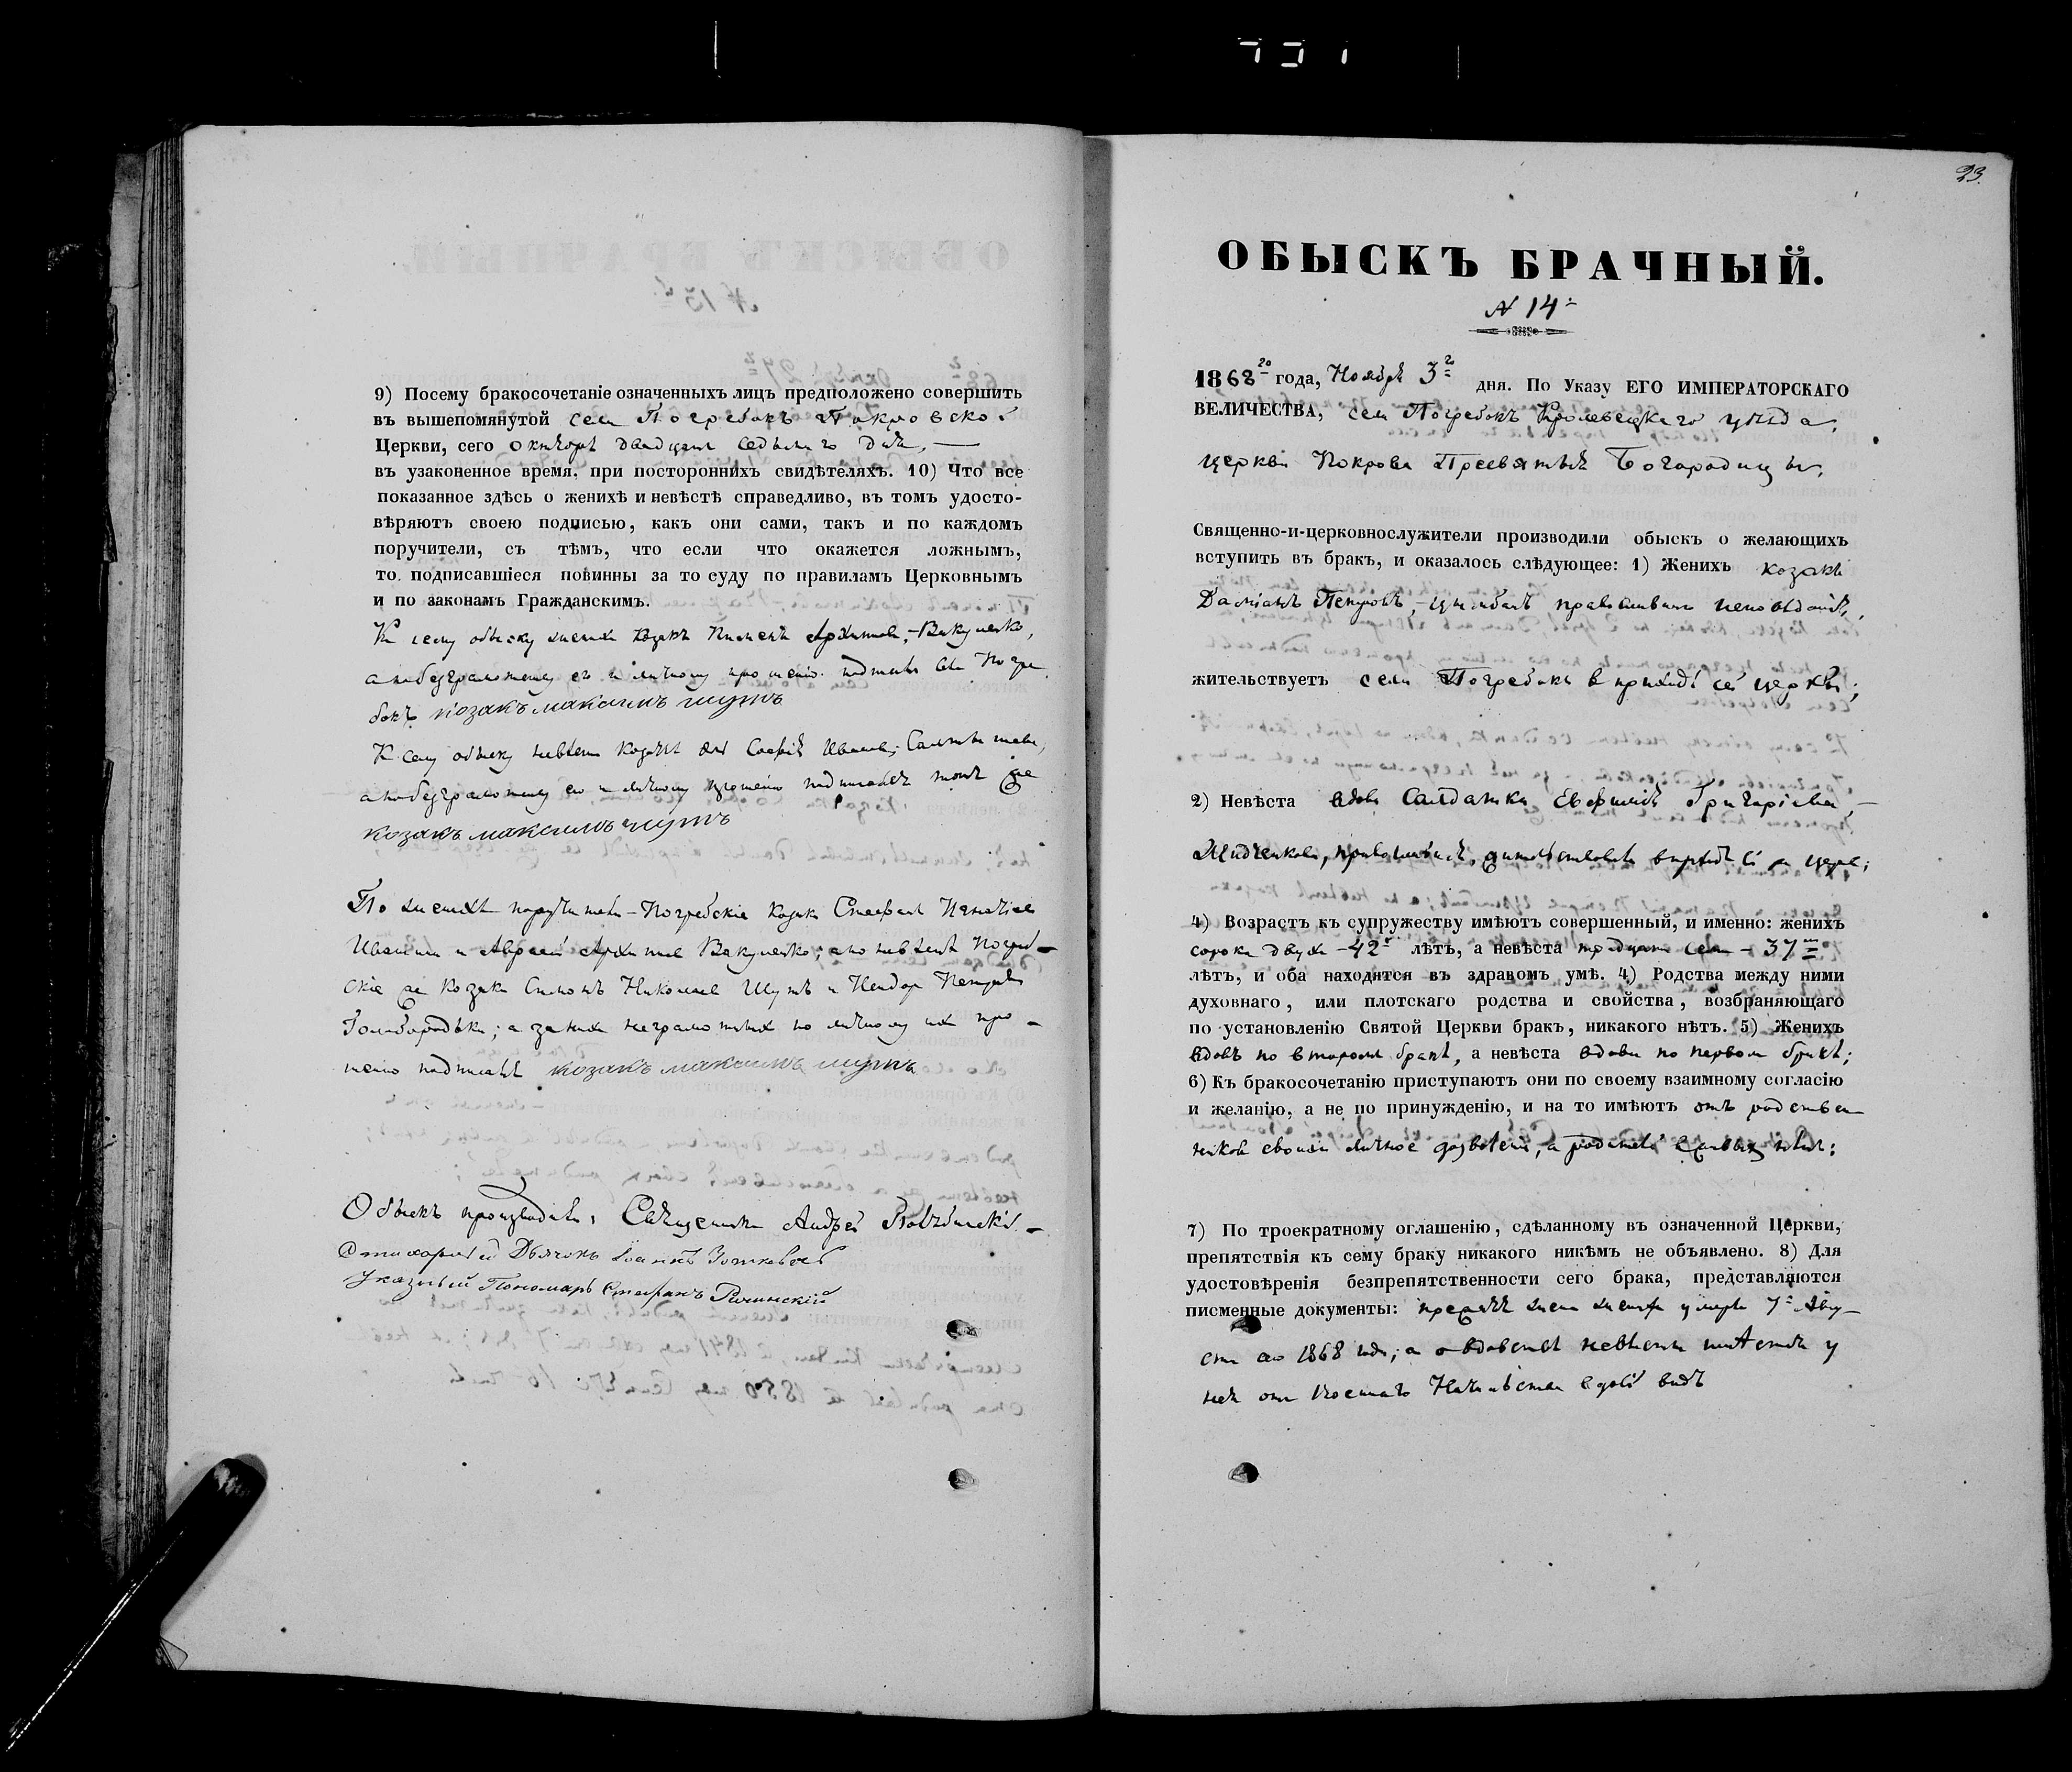 9) Посему бракосочетаніе означенныхъ лицъ предположено совершить
въ вышепомянутой села Погребокъ Покровской
Церкви, сего октября двадцать седьмаго дня,
въ узаконенное время, при постороннихъ свидѣтеляхъ. 10) Что все
показанное здѣсь о женихѣ и невѣстѣ справедливо, въ томъ удосто-
вѣряютъ своею подписью, какъ они сами, такъ и по каждомъ
поручители, съ тѣмъ, что если что окажется ложнымъ,
то подписавшіеся повинны за то суду по правиламъ Церковнымъ
и по законамъ Гражданскимъ.
К сему обыску женихъ козакъ Пименъ Архиповъ Вакуленко,
а по безграмотному его и личному прошенію подписалъ села Погре
бокъ козакъ максимъ шутъ
К сему обыску невѣста козачья дочь Софія Иванова,
а по безграмотному ея и личному прошенію подписалъ тотъ же
козакъ максимъ шутъ
По женихѣ поручители Погребскіе козаки Стефанъ Игнатіевъ
Ивашина и Авраамъ Архиповъ Вакуленко; а по невѣстѣ Погреб-
скіе же козаки Симонъ Николаевъ Шутъ и Петровъ
Голобородько; а за нихъ неграмотныхъ по личному ихъ про-
шенію подписалъ козакъ максимъ шутъ
Обыскъ производили: Священникъ Андрей
Стихарный Дьячокъ Іоаннъ
Указный Пономарь Стефанъ
23.
ОБЫСКЪ БРАЧНЫЙ.
N 14
1868го года, Ноября 3го дня. По Указу ЕГО ИМПЕРАТОРСКАГО
ВЕЛИЧЕСТВА, села Погребокъ Кролевецкаго уѣзда,
церкви Покрова Пресвятыя Богородицы,
Священно-и-церковнослужители производили обыскъ о желающихъ
вступить въ бракъ, и оказалось слѣдующее: 1) Женихъ козакъ
Даміанъ Петровъ Цимбалъ православнаго исповѣданія,
жительствуетъ села Погребокъ в приходѣ сей церкви;
2) Невѣста вдова Салдатка Евфимія Григоріева
православная, жительствовала в приходѣ сей же церкви;
4) Возрастъ къ супружеству имѣютъ совершенный, и именно: женихъ
сорока двухъ - 42 лѣтъ, а невѣста тридцати семи - 37ми
лѣтъ, и оба находятся въ здравомъ умѣ. 4) Родства между ними
духовнаго, или плотскаго родства и свойства, возбраняющаго
по установленію Святой Церкви бракъ, никакого нѣтъ. 5) Женихъ
вдовъ по второмъ бракѣ, а невѣста вдова по первомъ бракѣ;
6) Къ бракосочетанію приступаютъ они по своему взаимному согласію
и желанію, а не по принужденію, и на то имѣютъ отъ родствен
никовъ своихъ личное дозволеніе, а родителей в живыхъ нѣтъ;
7) По троекратному оглашенію, сдѣланному въ означенной Церкви,
препятствія къ сему браку никакого никѣмъ не объявлено. 8) Для
удостовѣренія безпрепятственности сего брака, представляются
писменные документы: жена жениха умерла 7 Авгу-
ста сего 1868 года; а о вдовствѣ невѣсты имѣется у
нея отъ Военнаго Начальства видъ